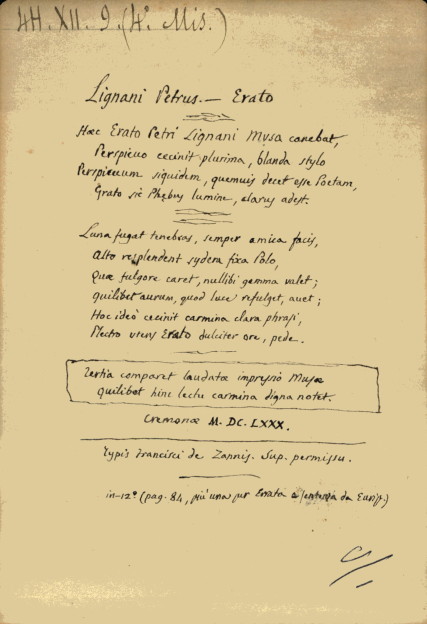 4H. XII. 9. (4º Mis.)
Lignani Petrus. — Erato
Hæc Erato Petri Lignani Musa canebat,
Perspicuo cecinit plurima, blanda stylo
Perspicuum siquidem, quemuis decet esse Poetam,
Grato sic Phœbus lumine, clarus adest.
Luna fugat tenebras, semper amica facis,
Alto resplendent sydera fixa Polo,
Quæ fulgore caret, nullibi gemma valet;
quilibet aurum, quod luce refulget, auet;
Hoc ideò cecinit carmina clara phrasi,
Plectro utens Erato dulciter ore, pede.
Tertia comparet laudatæ impressio Musæ
quilibet hinc lectu carmina digna notet.
Cremonæ M. DC. LXXX.
Typis Francisci de Zannis. Sup. permissu.
in-12º (pag. 84, più una per Errata e sentenza da Eurip.)